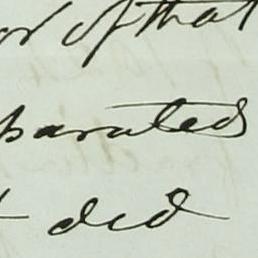 or of that
parated
t did